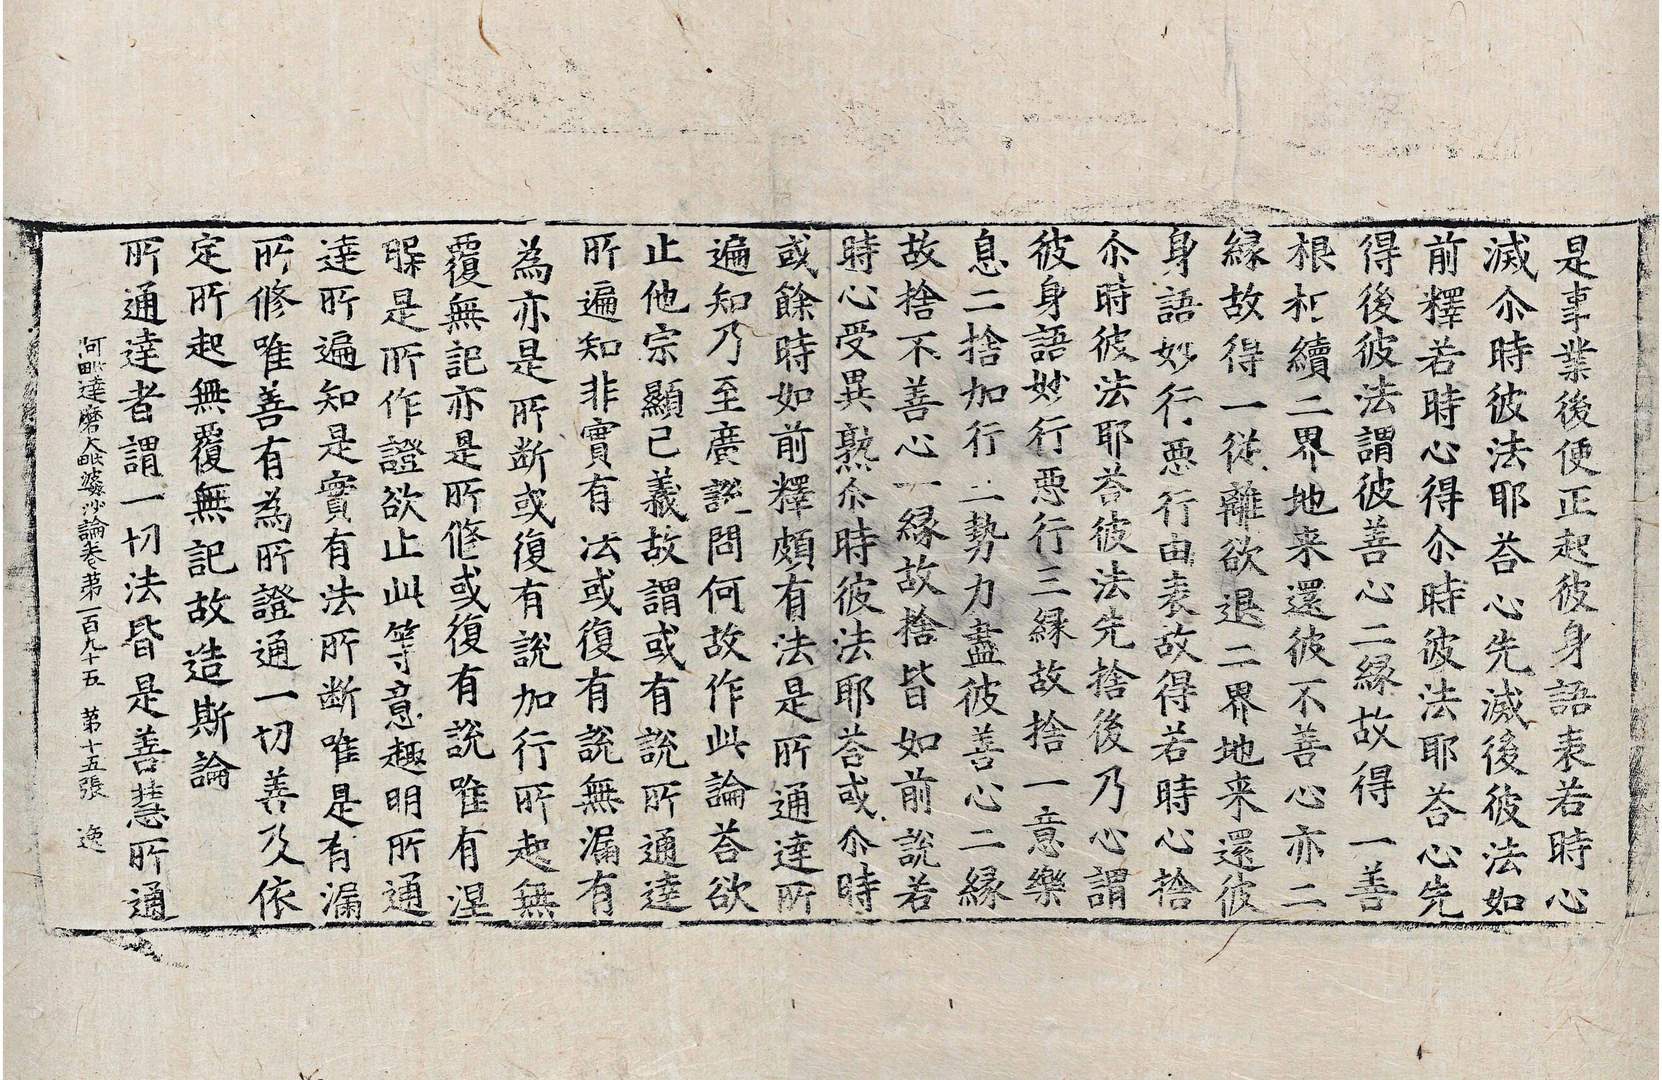 是事業後便正起彼身語表若時心
滅尒時彼法耶荅心先滅後彼法如
前釋若時心得尒時彼法耶荅心先
得後彼法謂彼善心二縁故得一善
根相續二界地来還彼不善心亦二
縁故得一從離欲退二界地来還彼
身語妙行惡行由表故得若時心捨
尒時彼法耶荅彼法先捨後乃心謂
彼身語妙行惡行三縁故捨一意樂
息二捨加行三勢力盡彼善心二縁
故捨不善心一縁故捨皆如前說若
時心受異熟尒時彼法耶荅或尒時
或餘時如前釋頗有法是所通達所
遍知乃至廣說問何故作此論荅欲
止他宗顯己義故謂或有說所通達
所遍知非實有法或復有說無漏有
為亦是所斷或復有說加行所起無
覆無記亦是所修或復有說唯有涅
槃是所作證欲止此等意趣明所通
達所遍知是實有法所斷唯是有漏
所修唯善有為所證通一切善及依
定所起無覆無記故造斯論
所通達者謂一切法皆是善慧所通
阿毗達磨大毗婆沙論卷第一百九十五　第十五張　逸